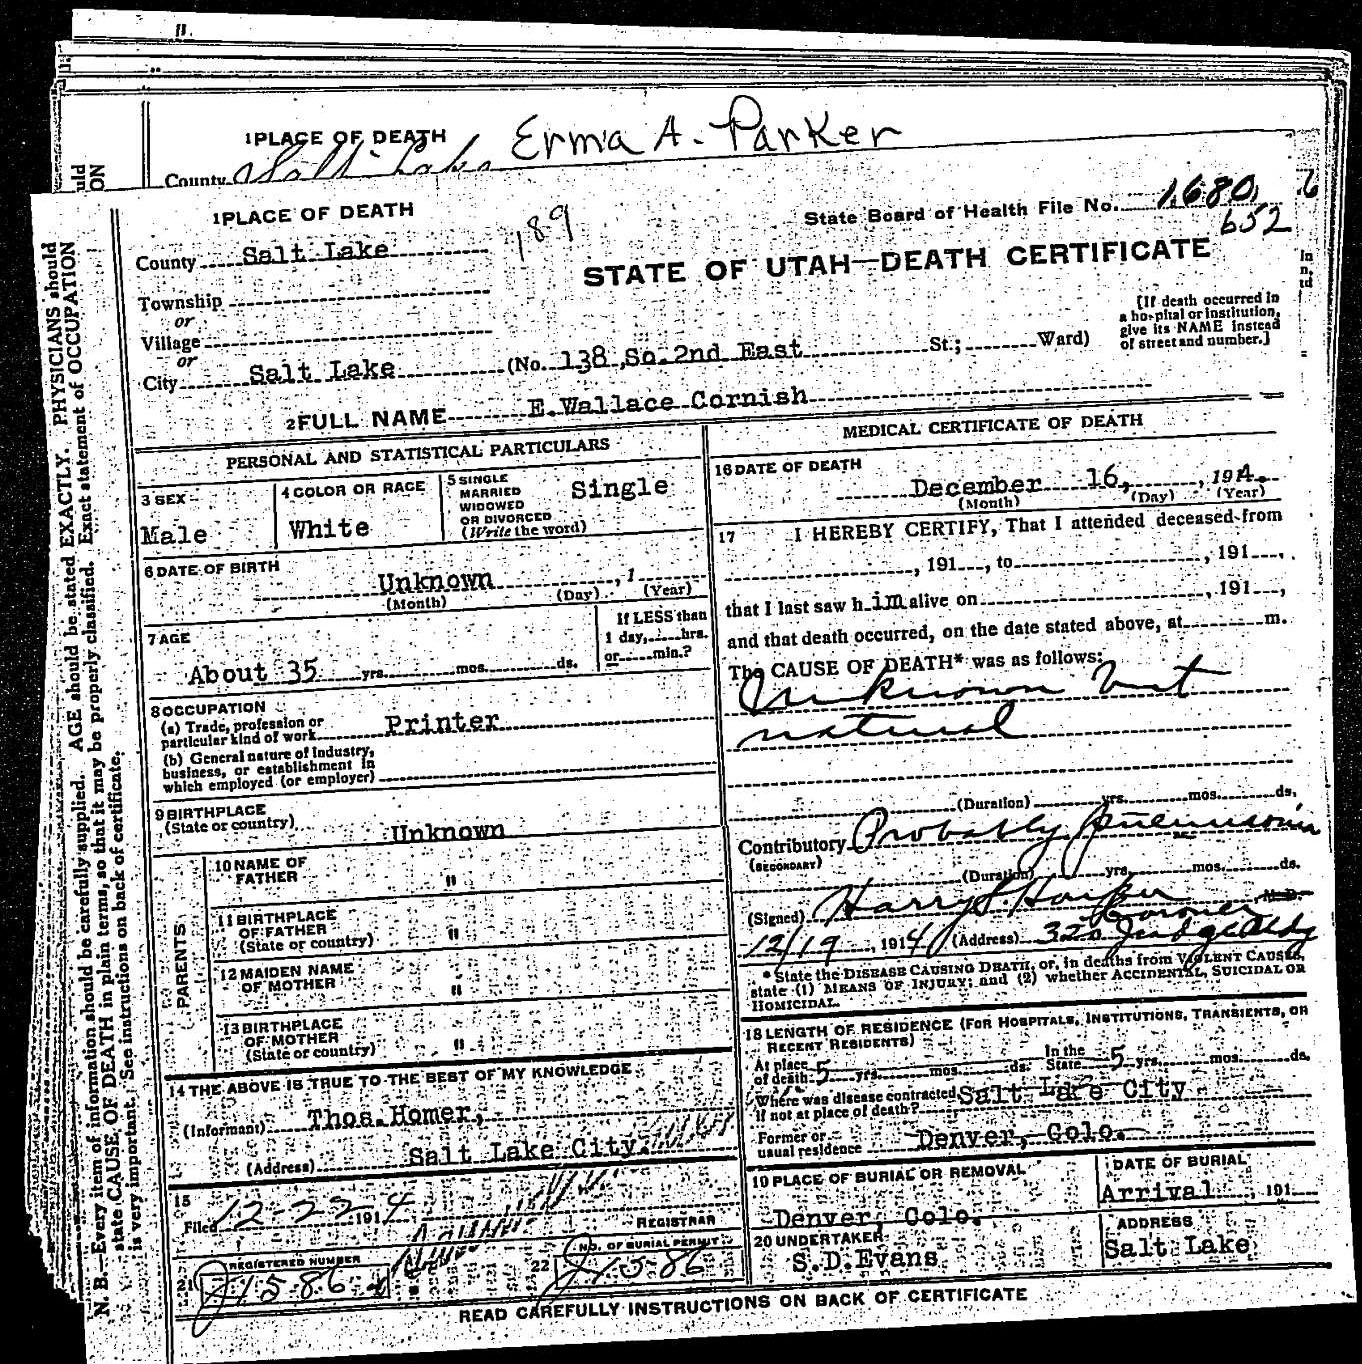 1 PLACE OF DEATH
Erma A. Parker
County Salt Lake
1 PLACE OF DEATH
189
State Board of Health File No. 1680
652
County Salt Lake
STATE OF UTAH—DEATH CERTIFICATE
Township
or
Village
or
City Salt Lake (No. 138 So. 2nd East St.; Ward)
[If death occurred in
a hospital or institution,
give its NAME instead
of street and number.]
2 FULL NAME E. Wallace Cornish
PERSONAL AND STATISTICAL PARTICULARS
3 SEX
Male
4 COLOR OR RACE
White
5 SINGLE
MARRIED
WIDOWED
OR DIVORCED
(Write the word)
Single
6 DATE OF BIRTH
Unknown , 1
(Month) (Day) (Year)
7 AGE
About 35 yrs. mos. ds.
If LESS than
1 day, hrs.
or min.?
8 OCCUPATION
(a) Trade, profession or
particular kind of work Printer
(b) General nature of Industry,
business, or establishment in
which employed (or employer)
9 BIRTHPLACE
(State or country) Unknown
PARENTS
10 NAME OF
FATHER "
11 BIRTHPLACE
OF FATHER
(State or country) "
12 MAIDEN NAME
OF MOTHER "
13 BIRTHPLACE
OF MOTHER
(State or country) "
14 THE ABOVE IS TRUE TO THE BEST OF MY KNOWLEDGE
(Informant) Thos. Homer,
(Address) Salt Lake City.
15
Filed 12-22 1914
REGISTRAR
REGISTERED NUMBER
21 J1586
NO. OF BURIAL PERMIT
22 J1586
MEDICAL CERTIFICATE OF DEATH
16 DATE OF DEATH
December 16, , 1914.
(Month) (Day) (Year)
17 I HEREBY CERTIFY, That I attended deceased from
, 191 , to , 191 ,
that I last saw h im alive on , 191 ,
and that death occurred, on the date stated above, at m.
The CAUSE OF DEATH* was as follows:
Unknown but
natural
(Duration) yrs. mos. ds.
Contributory Probably Pneumonia
(SECONDARY)
(Duration) yrs. mos. ds.
(Signed) Harry S. Harper M.D.
Coroner
12/19 , 1914 (Address) 320 Judge Bldg
* State the DISEASE CAUSING DEATH, or, in deaths from VIOLENT CAUSES,
state (1) MEANS OF INJURY; and (2) whether ACCIDENTAL, SUICIDAL OR
HOMICIDAL.
18 LENGTH OF RESIDENCE (FOR HOSPITALS, INSTITUTIONS, TRANSIENTS, OR
RECENT RESIDENTS)
At place
of death 5 yrs. mos. ds.
In the
State 5 yrs. mos. ds.
Where was disease contracted
if not at place of death? Salt Lake City
Former or
usual residence Denver, Colo.
19 PLACE OF BURIAL OR REMOVAL
Denver, Colo.
DATE OF BURIAL
Arrival , 191
20 UNDERTAKER
S.D.Evans
ADDRESS
Salt Lake
READ CAREFULLY INSTRUCTIONS ON BACK OF CERTIFICATE
N. B.—Every item of information should be carefully supplied. AGE should be stated EXACTLY. PHYSICIANS should
state CAUSE OF DEATH in plain terms, so that it may be properly classified. Exact statement of OCCUPATION
is very important. See instructions on back of certificate.